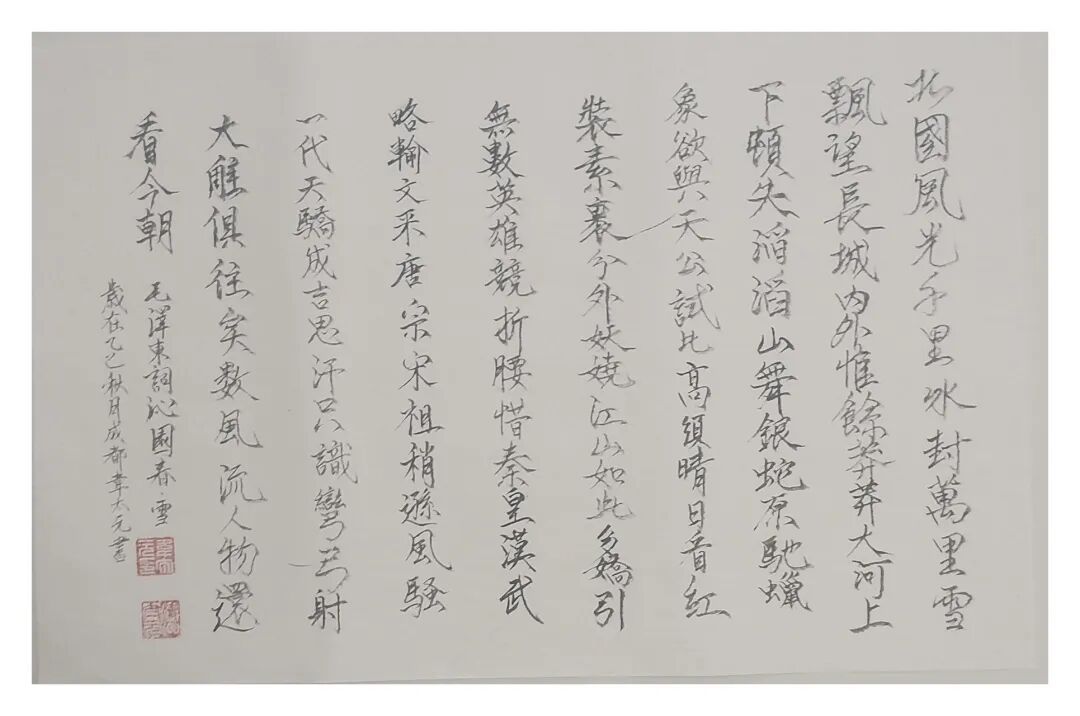 北國風光千里冰封萬里雪
飄望長城內外惟餘莽莽大河上
下頓失滔滔山舞銀蛇原馳蠟
象欲與天公試比高須晴日看紅
裝素裹分外妖嬈江山如此多嬌引
無數英雄競折腰惜秦皇漢武
略輸文采唐宗宋祖稍遜風騷
一代天驕成吉思汗只識彎弓射
大雕俱往矣數風流人物還
看今朝
毛澤東詞沁園春雪
歲在乙巳秋月成都韋太元書